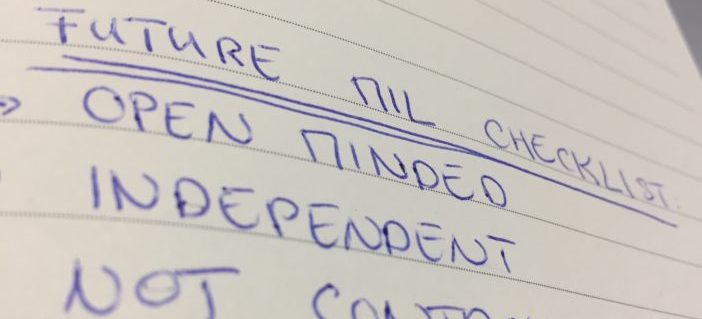 FUTURE MIL CHECKLIST.
OPEN MINDED
INDEPENDENT
NOT